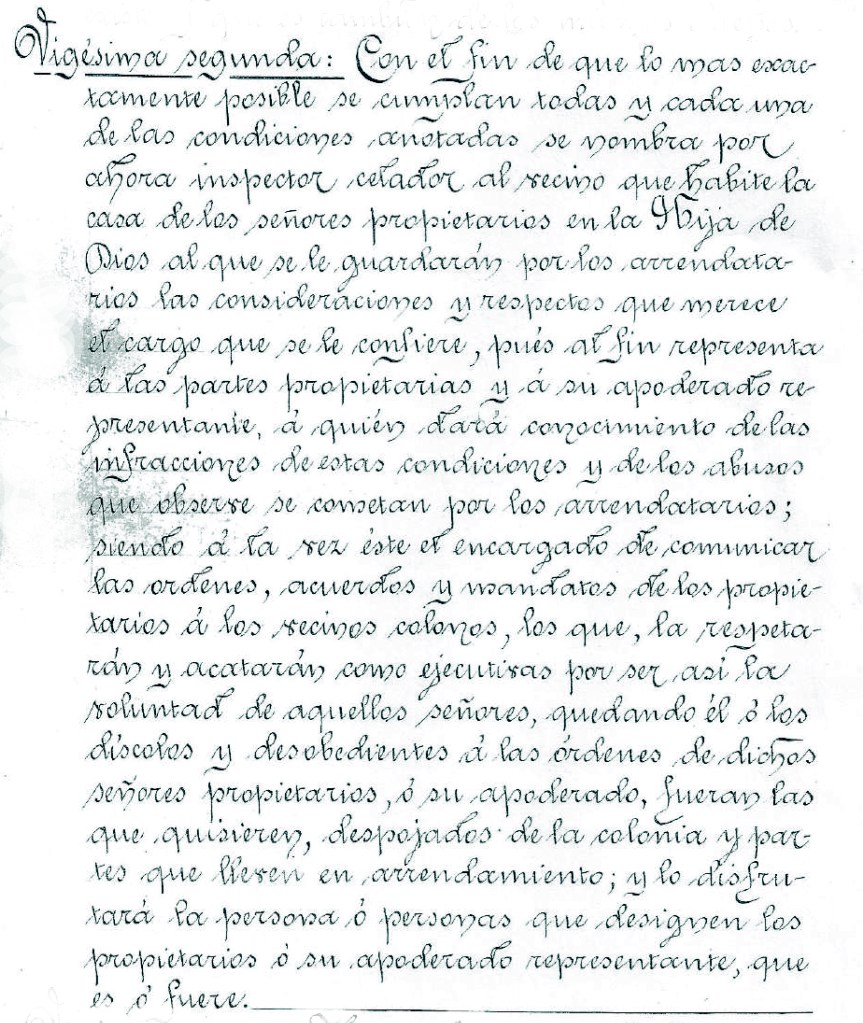 Vigésima segunda: Con el fin de que lo mas exac-
tamente posible se cumplan todas y cada una
de las condiciones anotadas se nombra por
ahora inspector celador al vecino que habite la
casa de los señores propietarios en la Hija de
Dios al que se le guardarán por los arrendata-
rios las consideraciones y respectos que merece
el cargo que se le confiere, pués al fin representa
á las partes propietarias y á su apoderado re-
presentante, á quién dará conocimiento de las
infracciones de estas condiciones y de los abusos
que observe se cometan por los arrendatarios;
siendo á la vez éste el encargado de comunicar
las ordenes, acuerdos y mandatos de los propie-
tarios á los vecinos colonos, los que, la respeta-
rán y acatarán como ejecutivas por ser asi la
voluntad de aquellos señores, quedando él ó los
díscolos y desobedientes á las órdenes de dichos
señores propietarios, ó su apoderado, fueran las
que quisieren, despojados de la colonia y par-
tes que lleven en arrendamiento; y lo disfru-
tará la persona ó personas que designen los
propietarios ó su apoderado representante, que
es ó fuere.